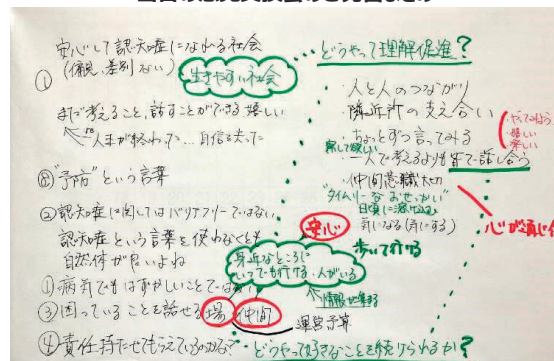 安心して認知症になれる社会
① (偏見、差別ない)
生きやすい社会
まだ考えること、話すことができる 嬉しい
人生が終わった… 自信を失った
⑧ "予防"という言葉
②認知症に関してはバリアフリーではない
認知症という言葉を使わなくとも
自然体が良いよね
①病気でもはずかしいことではない
③困っていることを話せる場 仲間
④責任持たせてもらえているのかな?
どうやって理解促進?
・人と人のつながり
・隣近所の支え合い
・ちょっとずつ言ってみる
察して欲しい
・一人で考えるより皆で話し合う
・仲間意識大切
"タイムリーなおせっかい"
日頃に
気になる(気にする)
・やってみよう
・嬉しい
・楽しい
心が通じ
安心
歩いて行ける
身近なところに
いつでも行ける・人がいる
情報が集まる
運営予算
どうやって好きなことを続けられるか?